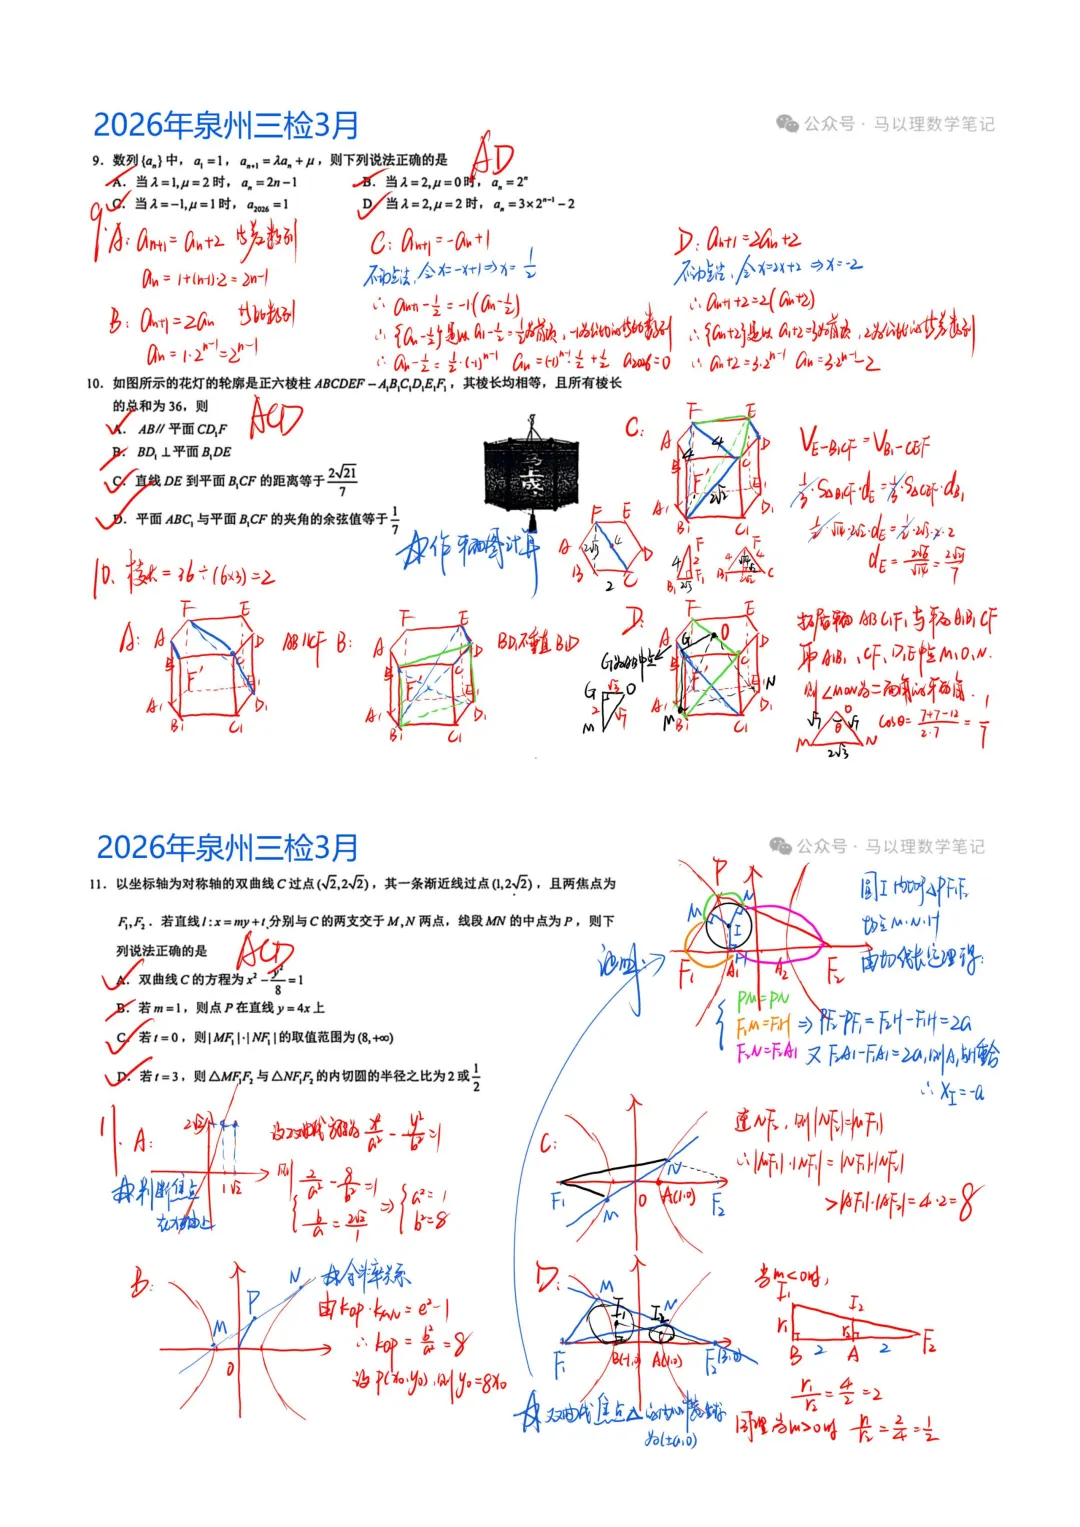 2026年泉州三检3月
公众号 · 马以理数学笔记
9. 数列{aₙ}中，a₁=1，aₙ₊₁=λaₙ+μ，则下列说法正确的是
AD
A. 当λ=1,μ=2时，aₙ=2n−1
B. 当λ=2,μ=0时，aₙ=2ⁿ
C. 当λ=−1,μ=1时，a₂₀₂₆=1
D. 当λ=2,μ=2时，aₙ=3×2ⁿ⁻¹−2
9.
A: aₙ₊₁=aₙ+2 等差数列
aₙ=1+(n-1)·2=2n-1
B: aₙ₊₁=2aₙ 等比数列
aₙ=1·2ⁿ⁻¹=2ⁿ⁻¹
C: aₙ₊₁=-aₙ+1
不动点法，令x=-x+1⇒x=1/2
∴aₙ₊₁-1/2=-1(aₙ-1/2)
∴{aₙ-1/2}是以a₁-1/2=1/2为首项，-1为公比的等比数列
∴aₙ-1/2=1/2·(-1)ⁿ⁻¹ aₙ=(-1)ⁿ⁻¹·1/2+1/2 a₂₀₂₆=0
D: aₙ₊₁=2aₙ+2
不动点法，令x=2x+2⇒x=-2
∴aₙ₊₁+2=2(aₙ+2)
∴{aₙ+2}是以a₁+2=3为首项，2为公比的等比数列
∴aₙ+2=3·2ⁿ⁻¹ aₙ=3·2ⁿ⁻¹-2
10. 如图所示的花灯的轮廓是正六棱柱ABCDEF−A₁B₁C₁D₁E₁F₁，其棱长均相等，且所有棱长
的总和为36，则
ACD
A. AB∥平面CD₁F
B. BD₁⊥平面B₁DE
C. 直线DE到平面B₁CF的距离等于2√21/7
D. 平面ABC₁与平面B₁CF的夹角的余弦值等于1/7
马上成
☆作平面图计算
10. 棱长=36÷(6×3)=2
C:
V_{E-B₁CF}=V_{B₁-CEF}
1/3·S△B₁CF·d_E=1/3·S△CEF·d_B₁
d_E=2√6/√14=2√21/7
A: AB∥CF
B: BD₁不垂直B₁D
D:
G为AB中点
取A₁B₁、CF、D₁E₁中点M、O、N.
则∠MON为二面角的平面角.
cosθ=(7+7-12)/(2·7)=1/7
2026年泉州三检3月
公众号 · 马以理数学笔记
11. 以坐标轴为对称轴的双曲线C过点(√2,2√2)，其一条渐近线过点(1,2√2)，且两焦点为
F₁,F₂．若直线l:x=my+t分别与C的两支交于M,N两点，线段MN的中点为P，则下
列说法正确的是
ACD
A. 双曲线C的方程为x²−y²/8=1
B. 若m=1，则点P在直线y=4x上
C. 若t=0，则|MF₁|·|NF₁|的取值范围为(8,+∞)
D. 若t=3，则△MF₁F₂与△NF₁F₂的内切圆的半径之比为2或1/2
证明
圆I内切于△PF₁F₂
切点M·N·H
由切线长定理得:
PM=PN
F₁M=F₁H ⇒PF₂-PF₁=F₂H-F₁H=2a
F₂N=F₂A₁ 又F₂A₁-F₁A₁=2a,则A₁与H重合
∴x_I=-a
11. A:
☆判断焦点
在x轴上
设双曲线方程为x²/a²-y²/b²=1
则{2/a²-8/b²=1
b/a=2√2/1 ⇒{a²=1
b²=8
B:
☆斜率关系
由k_OP·k_MN=e²-1
∴k_OP=b²/a²=8
设P(x₀,y₀),则y₀=8x₀
C:
A(1,0)
连NF₂, 则|NF₂|=|MF₁|
∴|MF₁|·|NF₁|=|NF₂|·|NF₁|
>|AF₁|·|AF₂|=4·2=8
D:
B(-1,0) A(1,0) F₂(3,0)
当m<0时,
r₁/r₂=4/2=2
同理当m>0时 r₁/r₂=2/4=1/2
☆双曲线焦点△的内心横坐标
为(±a,0)